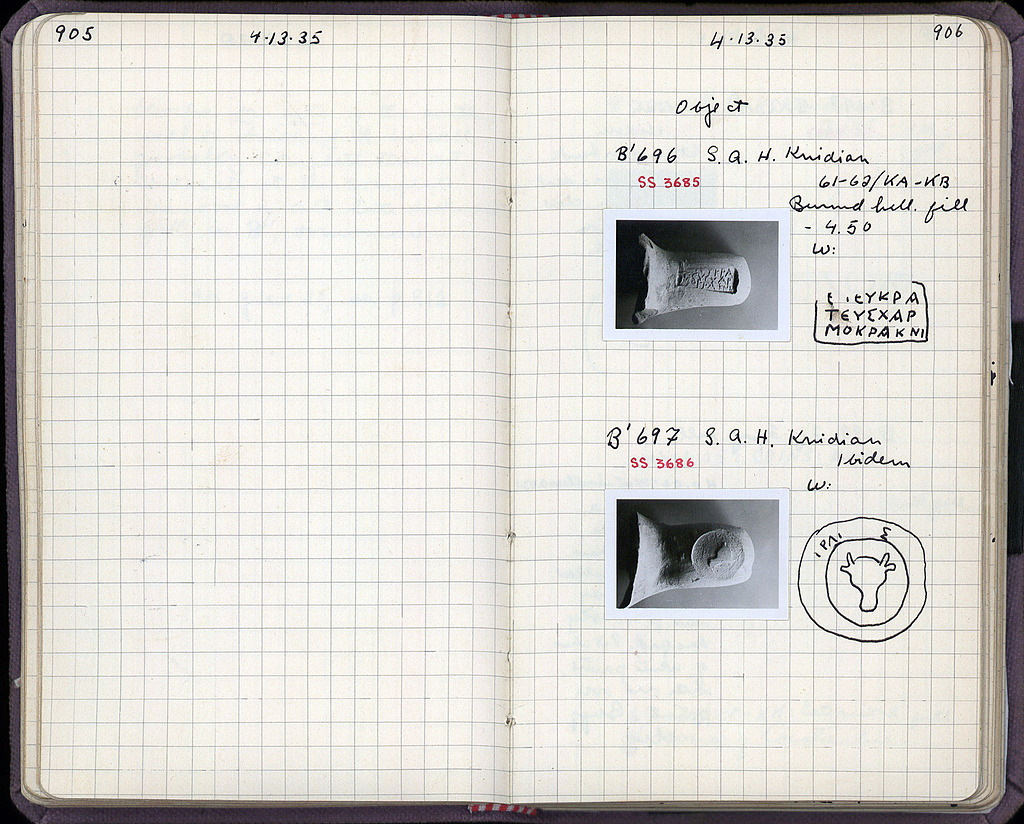 905
4·13·35
4·13·35
906
Object
B'696 S. A. H. Knidian
SS 3685
61-62/KA-KB
Burned hell. fill
- 4.50
W:
ΥΚΡΑ
ΤΕΥΣΧΑΡ
ΜΟΚΡΑΚΝΙ
B'697 S. A. H. Knidian
SS 3686
Ibidem
W:
Σ